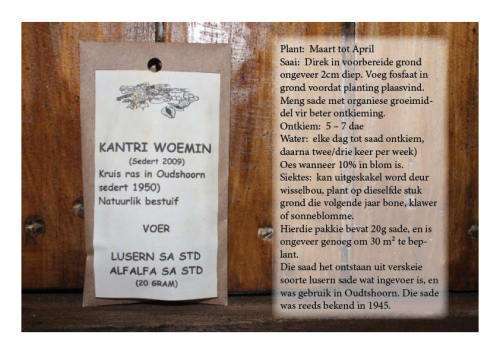 KANTRI WOEMIN
(Sedert 2009)
Kruis ras in Oudshoorn
sedert 1950)
Natuurlik bestuif
VOER
LUSERN SA STD
ALFALFA SA STD
(20 GRAM)
Plant: Maart tot April
Saai: Direk in voorbereide grond
ongeveer 2cm diep. Voeg fosfaat in
grond voordat planting plaasvind.
Meng sade met organiese groeimid-
del vir beter ontkieming.
Ontkiem: 5 – 7 dae
Water: elke dag tot saad ontkiem,
daarna twee/drie keer per week)
Oes wanneer 10% in blom is.
Siektes: kan uitgeskakel word deur
wisselbou, plant op dieselfde stuk
grond die volgende jaar bone, klawer
of sonneblomme.
Hierdie pakkie bevat 20g sade, en is
ongeveer genoeg om 30 m² te bep-
lant.
Die saad het ontstaan uit verskeie
soorte lusern sade wat ingevoer is, en
was gebruik in Oudtshoorn. Die sade
was reeds bekend in 1945.